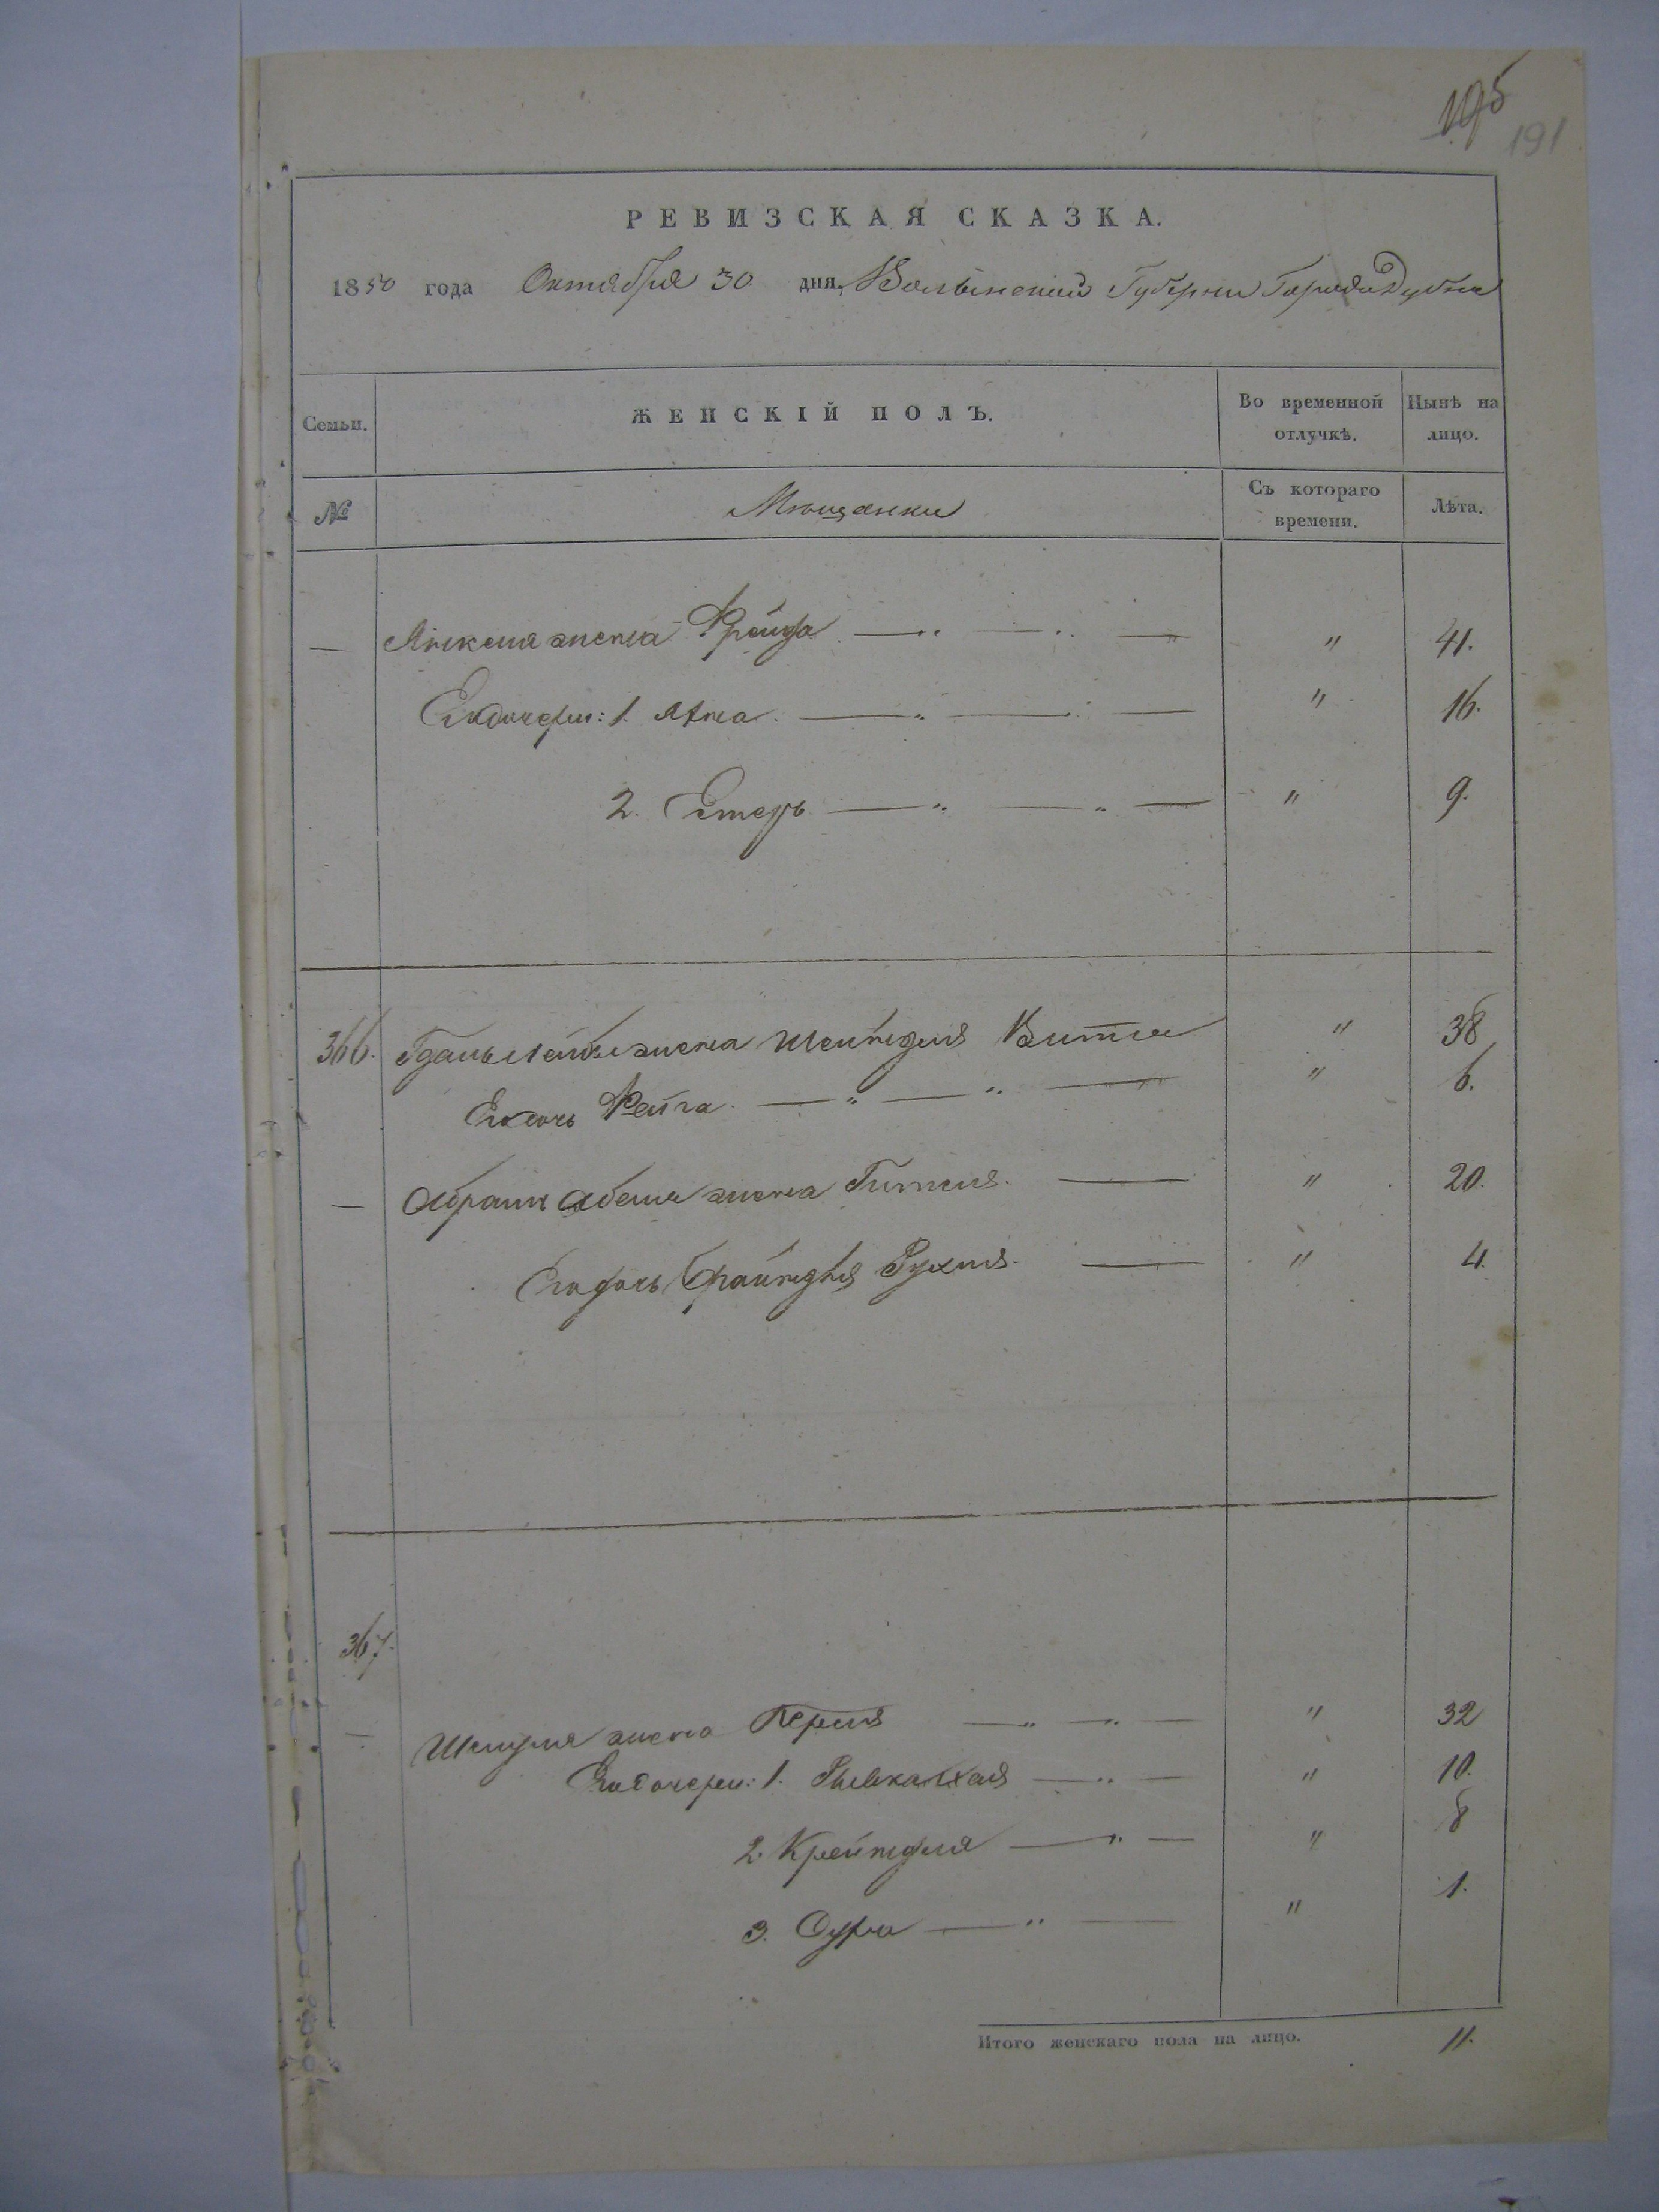 195
191
РЕВИЗСКАЯ СКАЗКА.
1850 года Октября 30 дня, Волынской Губернии Города Дубна
Семьи. ЖЕНСКІЙ ПОЛЪ. Во временной отлучкѣ. Нынѣ на лицо.
№ Мѣщанки Съ котораго времени. Лѣта.
— жена Фрейда — " — " — " 41.
Его дочери: 1. — " — " — " 16.
2. Естеръ — " — " — " 9.
366. Лейбы жена Шейндля " 38
Его дочь Фейга — " — " — " 6.
— жена Гитля — " 20.
Его дочь Фрайндля Рухля — " 4.
367.
— Шмуля жена Перля — " — " — " 32
Его дочери: 1. Рывка Хая — " — " 10.
2. Крейндля — " — " 8
3. Сура — " — " 1.
Итого женскаго пола на лицо. 11.